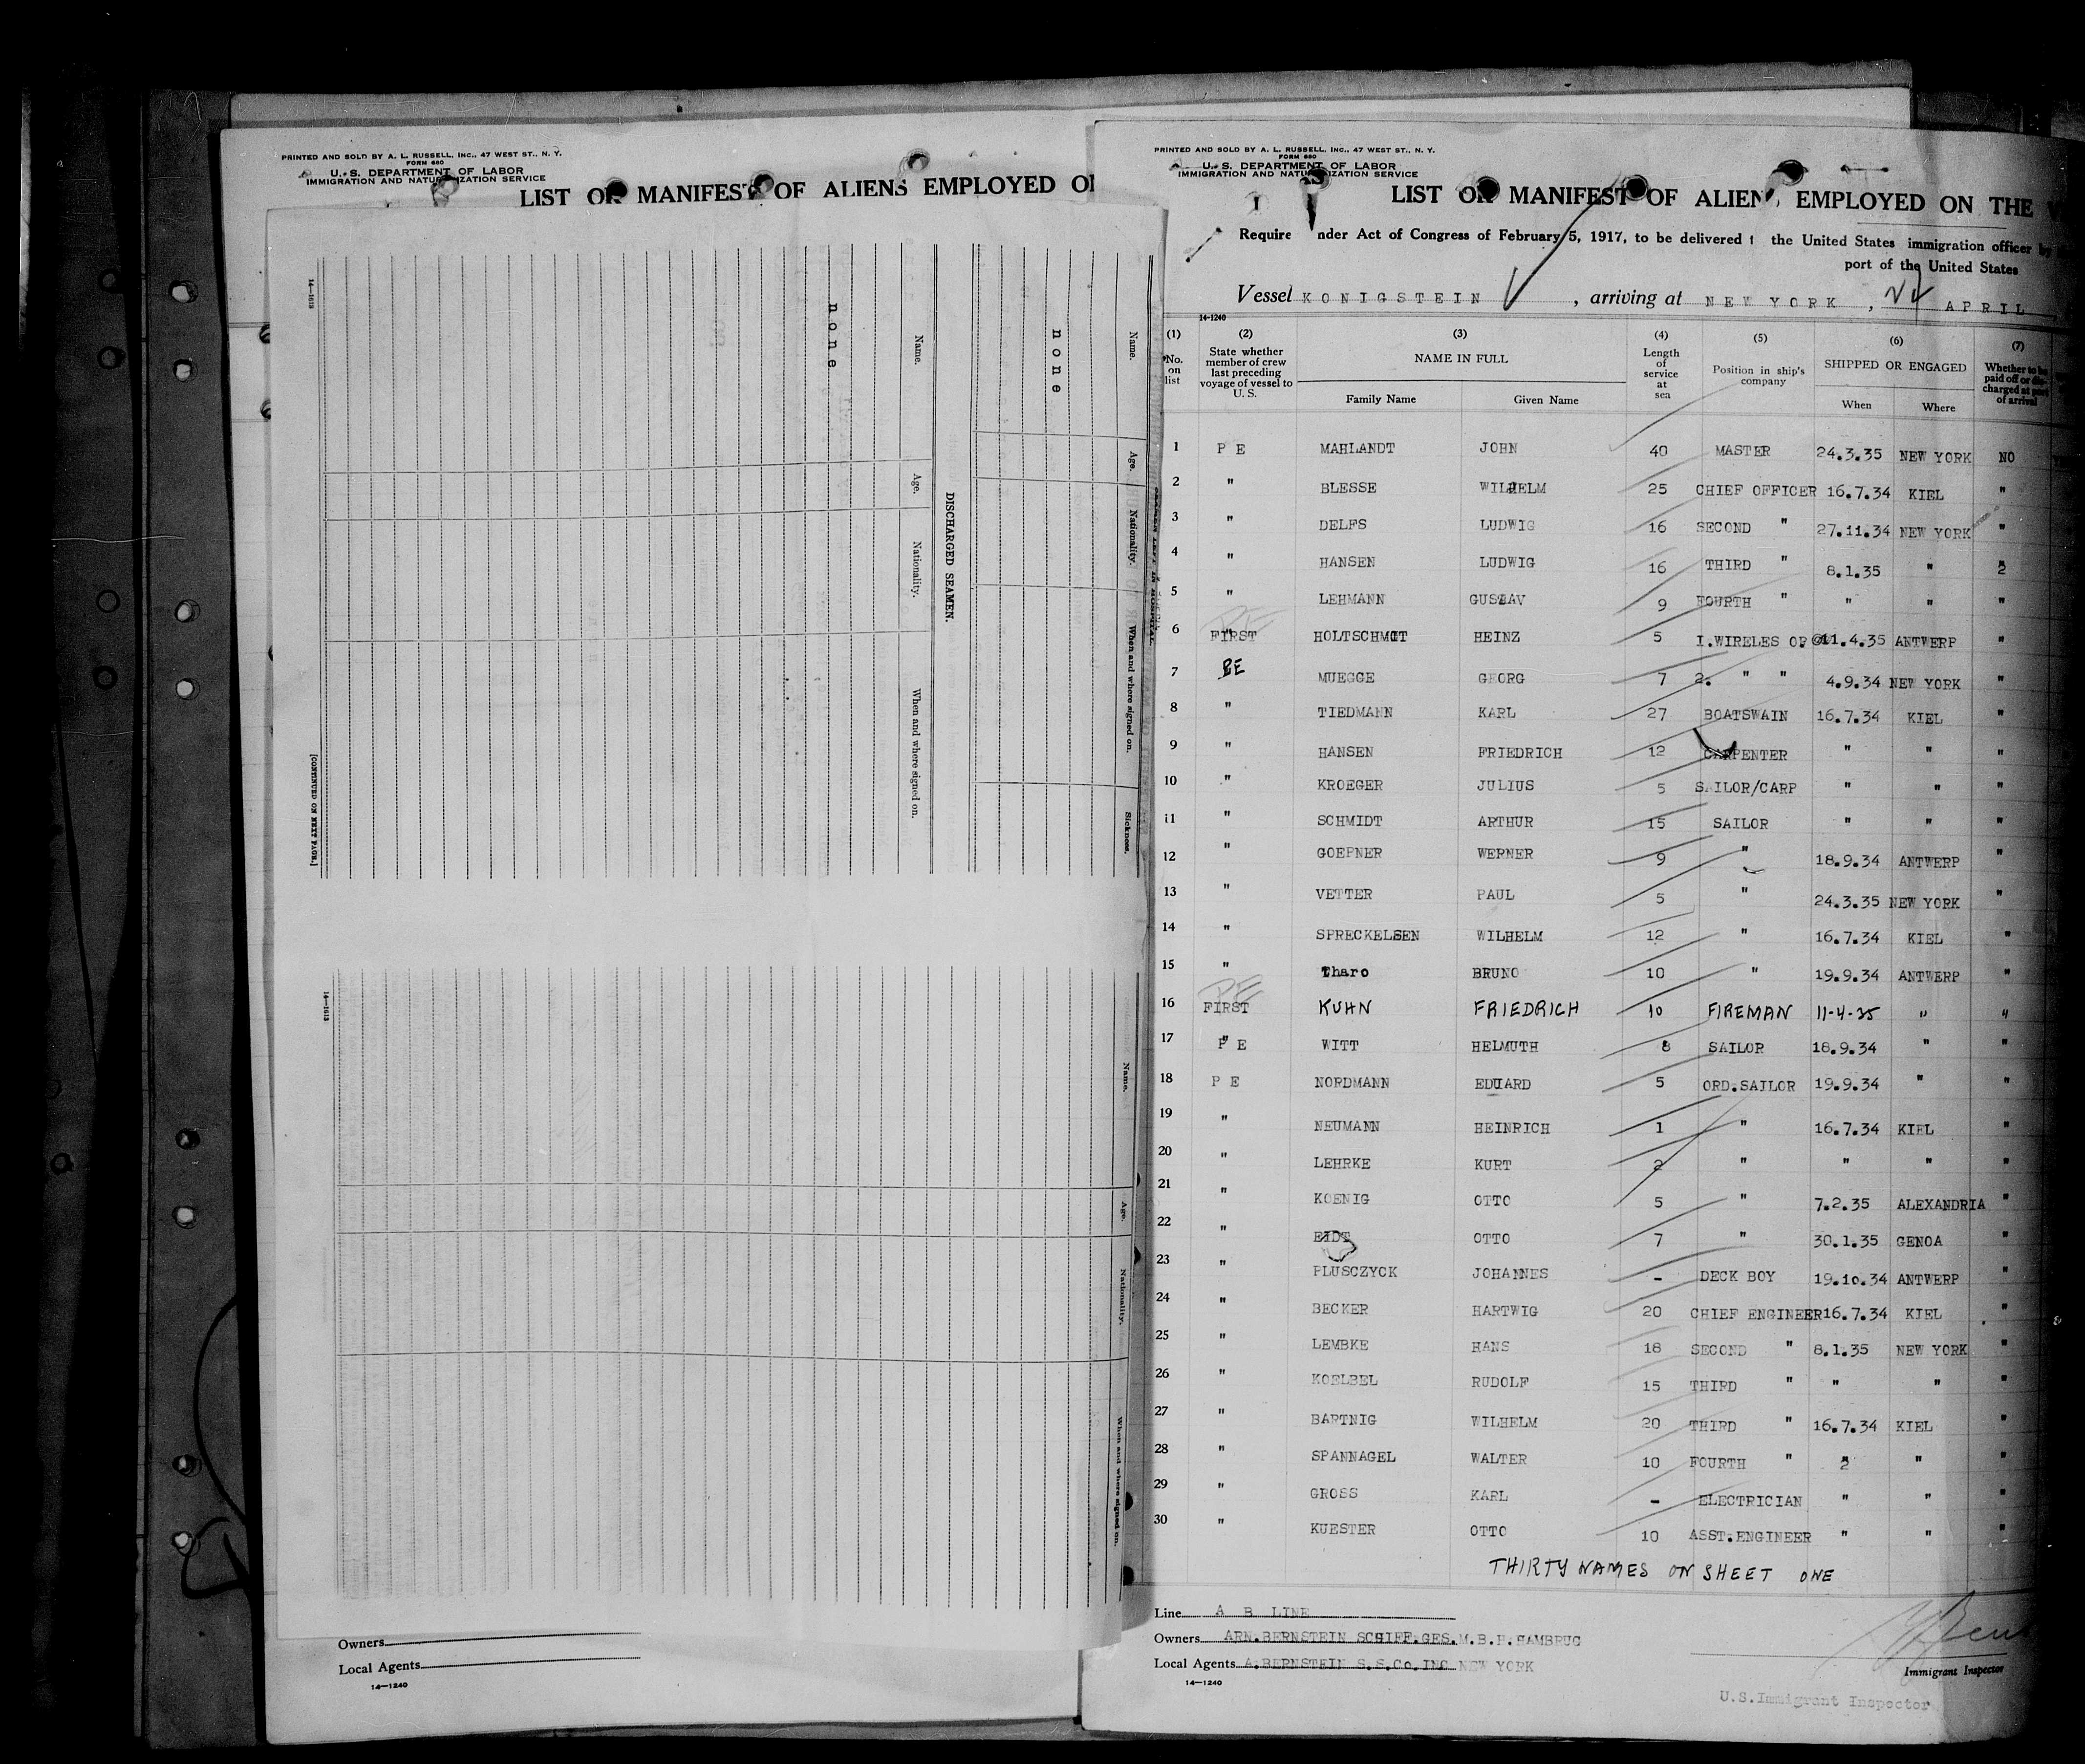 PRINTED AND SOLD BY A. L. RUSSELL, INC., 47 WEST ST., N. Y.
FORM 680
U. S. DEPARTMENT OF LABOR
IMMIGRATION AND NATURALIZATION SERVICE
LIST OR MANIFEST OF ALIENS EMPLOYED O
14—1613
none
none
Name.
Name.
Age.
Age.
Nationality.
Nationality.
DISCHARGED SEAMEN.
When and where signed on.
When and where signed on.
Sickness.
[CONTINUED ON NEXT PAGE.]
14—1613
Name.
Age.
Nationality.
When and where signed on.
Owners
Local Agents
14—1240
PRINTED AND SOLD BY A. L. RUSSELL, INC., 47 WEST ST., N. Y.
FORM 680
U. S. DEPARTMENT OF LABOR
IMMIGRATION AND NATURALIZATION SERVICE
LIST OR MANIFEST OF ALIEN EMPLOYED ON THE
Require nder Act of Congress of February 5, 1917, to be delivered t the United States immigration officer by
port of the United States
Vessel KONIGSTEIN, arriving at NEW YORK, NY APRIL
14-1240
(1) (2) (3) (4) (5) (6) (7)
No. on list State whether member of crew last preceding voyage of vessel to U. S. NAME IN FULL Length of service at sea Position in ship's company SHIPPED OR ENGAGED Whether to be paid off or discharged at port of arrival
Family Name Given Name When Where
1 P E MAHLANDT JOHN 40 MASTER 24.3.35 NEW YORK NO
2 " BLESSE WILHELM 25 CHIEF OFFICER 16.7.34 KIEL "
3 " DELFS LUDWIG 16 SECOND " 27.11.34 NEW YORK "
4 " HANSEN LUDWIG 16 THIRD " 8.1.35 " "
5 " LEHMANN GUSTAV 9 FOURTH " " " "
6 PE FIRST HOLTSCHMIT HEINZ 5 I.WIRELES OP 11.4.35 ANTWERP "
7 PE MUEGGE GEORG 7 2. " " 4.9.34 NEW YORK "
8 " TIEDMANN KARL 27 BOATSWAIN 16.7.34 KIEL "
9 " HANSEN FRIEDRICH 12 CARPENTER " " "
10 " KROEGER JULIUS 5 SAILOR/CARP " " "
11 " SCHMIDT ARTHUR 15 SAILOR " " "
12 " GOEPNER WERNER 9 " 18.9.34 ANTWERP "
13 " VETTER PAUL 5 " 24.3.35 NEW YORK "
14 " SPRECKELSEN WILHELM 12 " 16.7.34 KIEL "
15 " Tharo BRUNO 10 " 19.9.34 ANTWERP "
16 PE FIRST KUHN FRIEDRICH 10 FIREMAN 11-4-35 " "
17 P E WITT HELMUTH 8 SAILOR 18.9.34 " "
18 P E NORDMANN EDUARD 5 ORD.SAILOR 19.9.34 " "
19 " NEUMANN HEINRICH 1 " 16.7.34 KIEL "
20 " LEHRKE KURT 2 " " " "
21 " KOENIG OTTO 5 " 7.2.35 ALEXANDRIA "
22 " EIDT OTTO 7 " 30.1.35 GENOA "
23 " PLUSCZYCK JOHANNES - DECK BOY 19.10.34 ANTWERP "
24 " BECKER HARTWIG 20 CHIEF ENGINEER 16.7.34 KIEL "
25 " LEMBKE HANS 18 SECOND " 8.1.35 NEW YORK "
26 " KOELBEL RUDOLF 15 THIRD " " " "
27 " BARTNIG WILHELM 20 THIRD " 16.7.34 KIEL "
28 " SPANNAGEL WALTER 10 FOURTH " " " "
29 " GROSS KARL - ELECTRICIAN " " "
30 " KUESTER OTTO 10 ASST.ENGINEER " " "
THIRTY NAMES ON SHEET ONE
Line A B LINE
Owners ARN.BERNSTEIN SCHIFF.GES.M.B.H.HAMBRUG
Local Agents A.BERNSTEIN S.S.Co.INC NEW YORK
14—1240
Immigrant Inspector
U.S.Immigrant Inspector